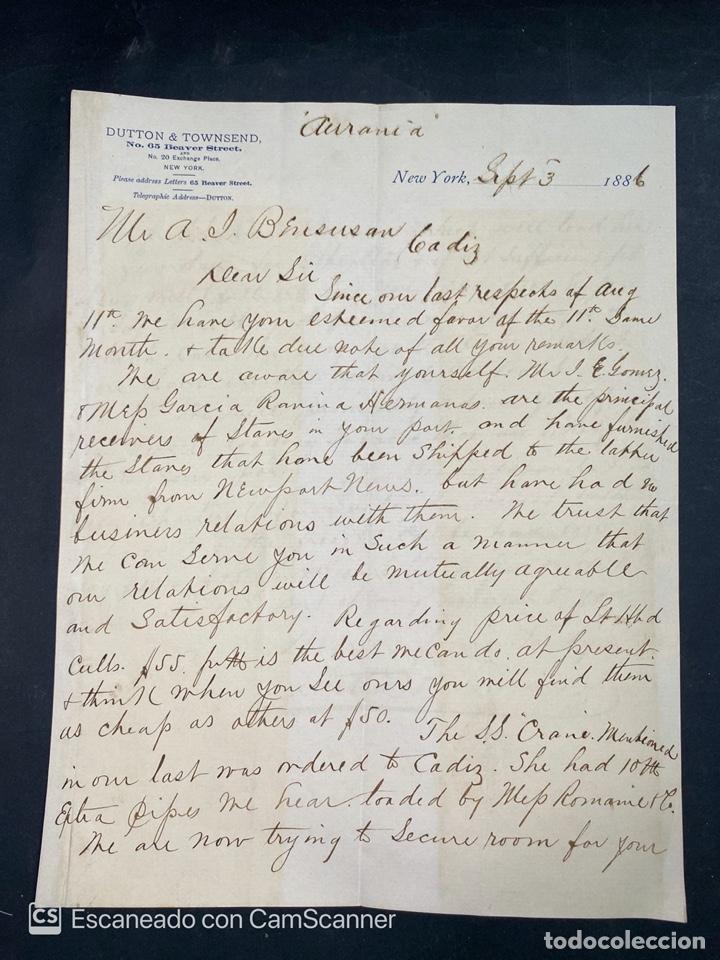 "Aurania"
DUTTON & TOWNSEND,
No. 65 Beaver Street.
AND
No. 20 Exchange Place,
NEW YORK.
Please address Letters 65 Beaver Street.
Telegraphic Address—DUTTON.
New York, Sept 3 1886
Mr A. J. Bensusan
Cadiz
Dear Sir
Since our last respects of Aug
11th. We have your esteemed favor of the 11th. Same
Month. & take due note of all your remarks.
We are aware that yourself. Mr J. E. Gomez.
& Mess Garcia Ravina Hermanos. are the principal
receivers of Staves in your port. and have furnished
the Staves that have been shipped to the latter
firm from Newport News. but have had no
business relations with them. We trust that
We can serve you in such a manner that
our relations will be mutually agreeable
and Satisfactory. Regarding price of Lt Hhd
Culls. $55. is the best we can do. at present.
& think when you see ours you will find them
as cheap as others at $50. The S.S. "Crane". Mentioned
in our last was ordered to Cadiz. She had 10
Extra Pipes we hear. loaded by Mess Romaine & Co.
We are now trying to secure room for your
CS Escaneado con CamScanner
todocoleccion